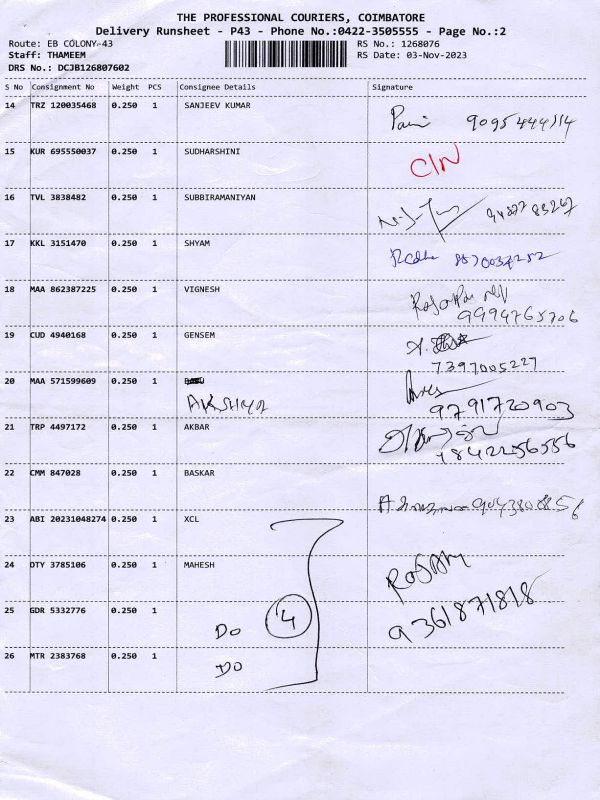 THE PROFESSIONAL COURIERS, COIMBATORE
Delivery Runsheet - P43 - Phone No.:0422-3505555 - Page No.:2
Route: EB COLONY-43 RS No.: 1268076
Staff: THAMEEM RS Date: 03-Nov-2023
DRS No.: DCJB126807602
S No Consignment No Weight PCS Consignee Details Signature
14 TRZ 120035468 0.250 1 SANJEEV KUMAR
15 KUR 695550037 0.250 1 SUDHARSHINI
C/N
16 TVL 3838482 0.250 1 SUBBIRAMANIYAN
17 KKL 3151470 0.250 1 SHYAM
18 MAA 862387225 0.250 1 VIGNESH
9994765706
19 CUD 4940168 0.250 1 GENSEM
7397005227
20 MAA 571599609 0.250 1
AKSHYA
9791720903
21 TRP 4497172 0.250 1 AKBAR
22 CMM 847028 0.250 1 BASKAR
23 ABI 20231048274 0.250 1 XCL
24 DTY 3785106 0.250 1 MAHESH
25 GDR 5332776 0.250 1
Do 4 9361871818
26 MTR 2383768 0.250 1
Do